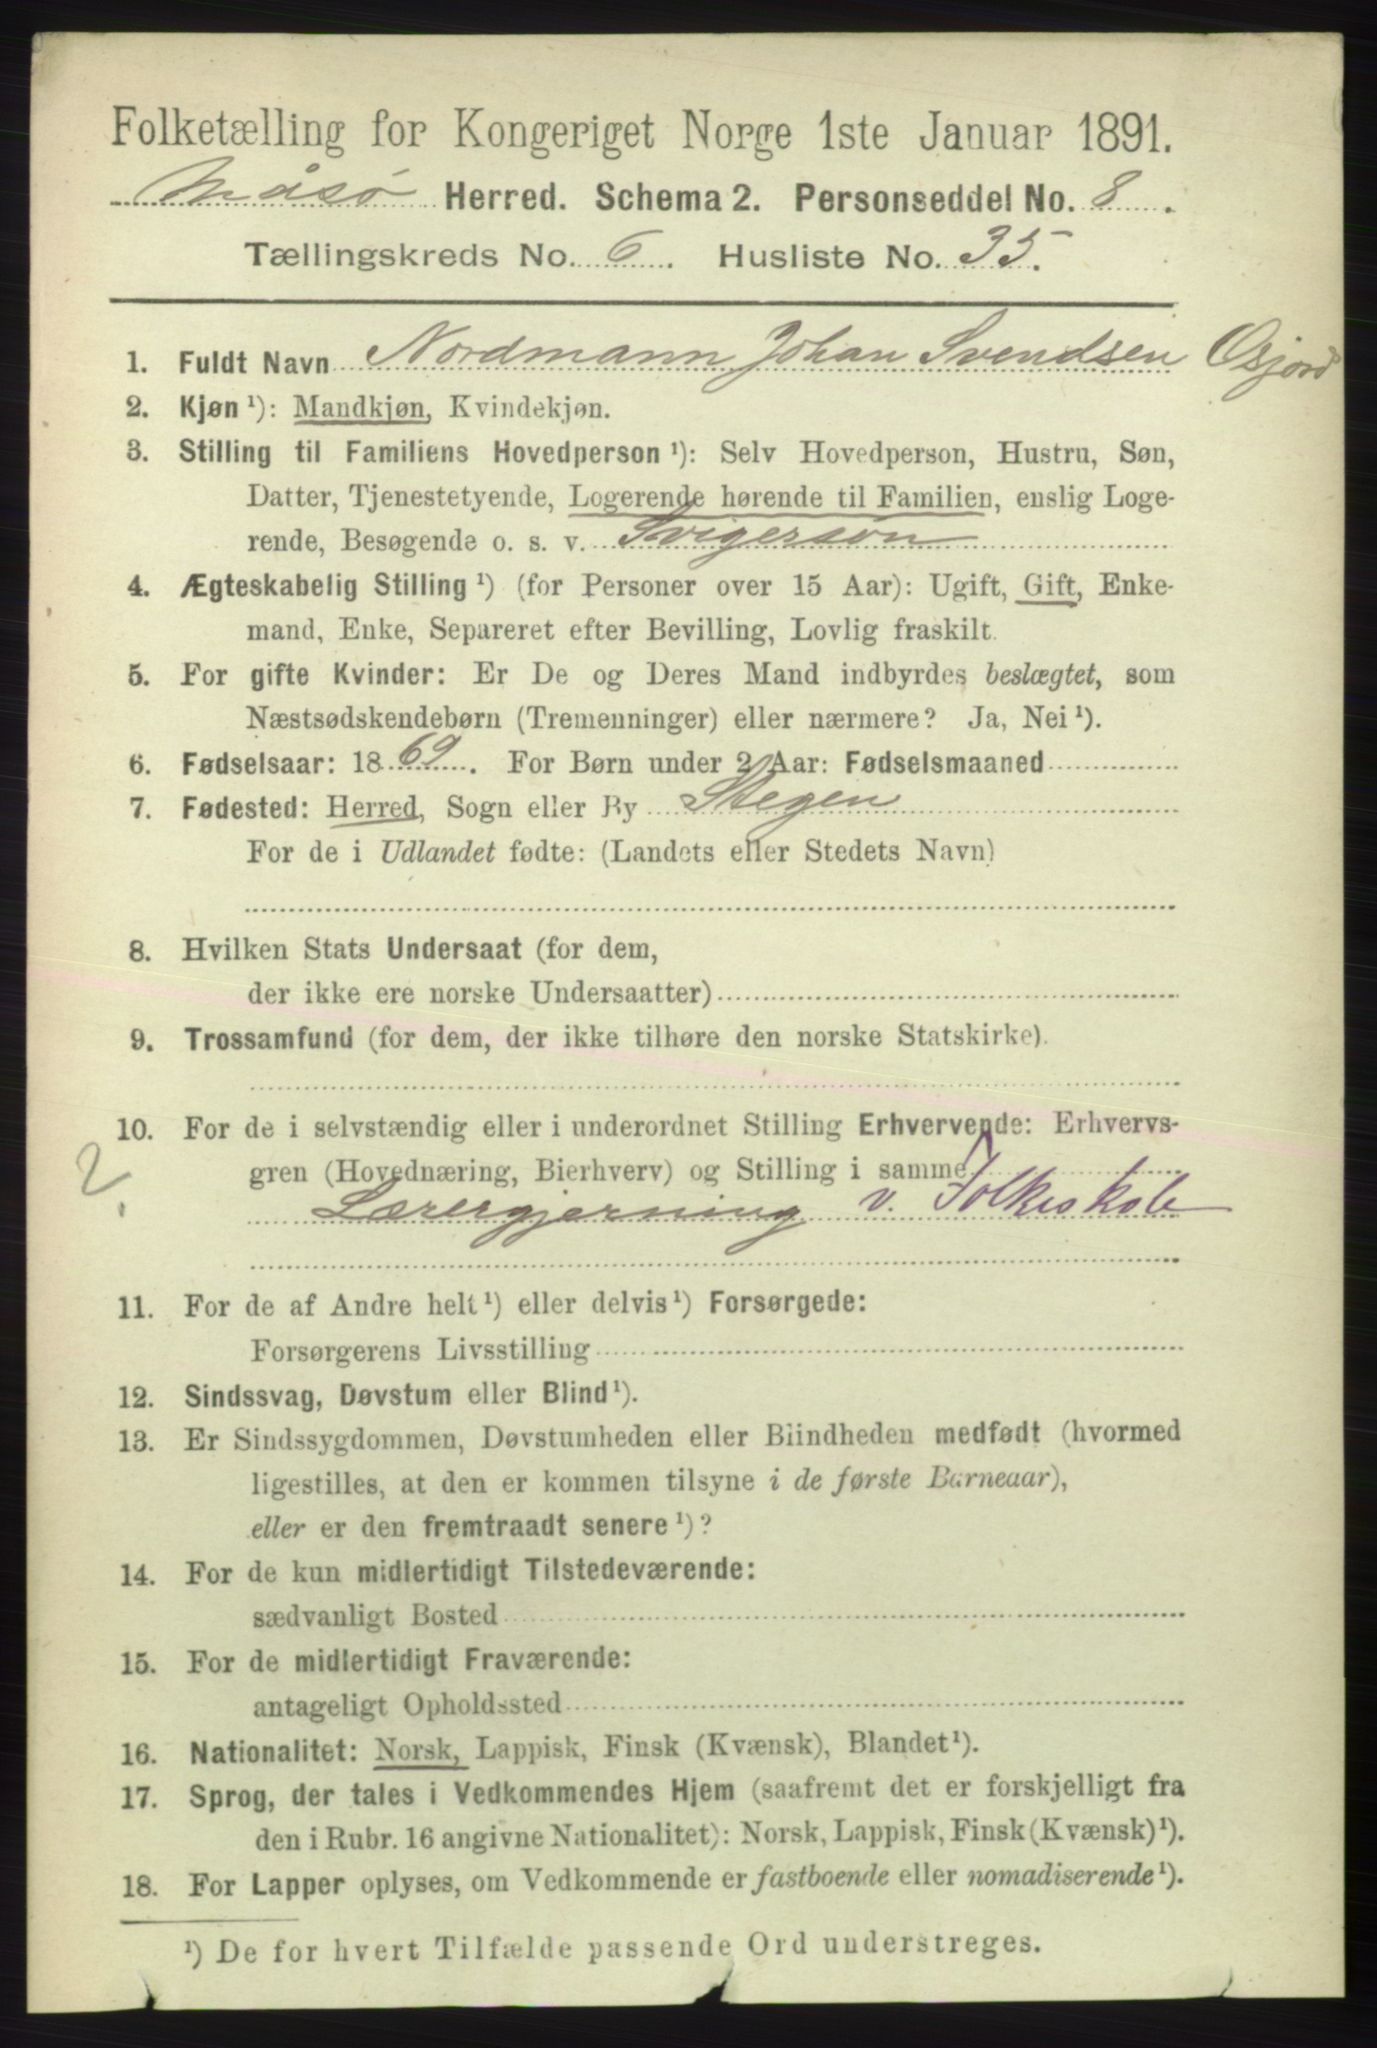 Folketælling for Kongeriget Norge 1ste Januar 1891.
Måsø Herred. Schema 2. Personseddel No. 8.
Tællingskreds No. 6. Husliste No. 35.
1. Fuldt Navn Nordmann Johan Svendsen Osjord
2. Kjøn ¹): Mandkjøn, Kvindekjøn.
3. Stilling til Familiens Hovedperson ¹): Selv Hovedperson, Hustru, Søn,
Datter, Tjenestetyende, Logerende hørende til Familien, enslig Loge-
rende, Besøgende o. s. v. Svigersøn
4. Ægteskabelig Stilling ¹) (for Personer over 15 Aar): Ugift, Gift, Enke-
mand, Enke, Separeret efter Bevilling, Lovlig fraskilt.
5. For gifte Kvinder: Er De og Deres Mand indbyrdes beslægtet, som
Næstsødskendebørn (Tremenninger) eller nærmere? Ja, Nei ¹).
6. Fødselsaar: 1869. For Børn under 2 Aar: Fødselsmaaned
7. Fødested: Herred, Sogn eller By Stegen
For de i Udlandet fødte: (Landets eller Stedets Navn)
8. Hvilken Stats Undersaat (for dem,
der ikke ere norske Undersaatter)
9. Trossamfund (for dem, der ikke tilhøre den norske Statskirke).
10. For de i selvstændig eller i underordnet Stilling Erhvervende: Erhvervs-
2.
gren (Hovednæring, Bierhverv) og Stilling i samme
Lærergjerning v. Folkeskole
11. For de af Andre helt ¹) eller delvis ¹) Forsørgede:
Forsørgerens Livsstilling
12. Sindssvag, Døvstum eller Blind ¹).
13. Er Sindssygdommen, Døvstumheden eller Blindheden medfødt (hvormed
ligestilles, at den er kommen tilsyne i de første Barneaar),
eller er den fremtraadt senere ¹)?
14. For de kun midlertidigt Tilstedeværende:
sædvanligt Bosted
15. For de midlertidigt Fraværende:
antageligt Opholdssted
16. Nationalitet: Norsk, Lappisk, Finsk (Kvænsk), Blandet ¹).
17. Sprog, der tales i Vedkommendes Hjem (saafremt det er forskjelligt fra
den i Rubr. 16 angivne Nationalitet): Norsk, Lappisk, Finsk (Kvænsk) ¹).
18. For Lapper oplyses, om Vedkommende er fastboende eller nomadiserende ¹).
¹) De for hvert Tilfælde passende Ord understreges.